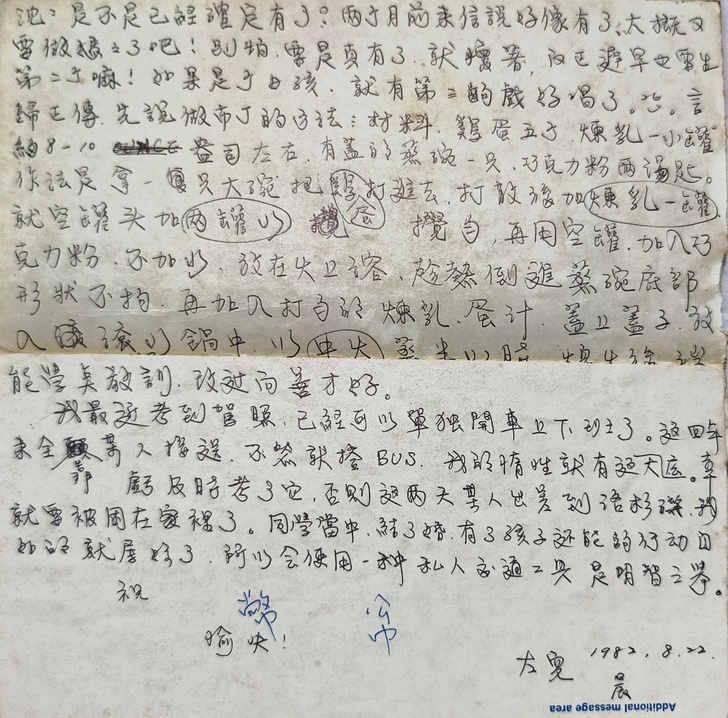 沈：是不是已經確定有了？兩个月前來信說好像有了，大概又
要做娘了吧！別怕，要是真有了，就懷著，反正遲早也要生
第二个嘛！如果是个女孩，就有第二齣戲好唱了。言
歸正傳，先說做布丁的方法：材料，雞蛋五个，煉乳一小罐
約8-10 盎司左右，有蓋的蒸碗一只，巧克力粉兩湯匙。
作法是拿一只大碗把蛋打進去，打散後加煉乳一罐
就空罐头加兩罐水 攪勻，再用空罐，加入巧
克力粉，不加水，放在火上溶，趁熱倒進蒸碗底部
形狀不拘，再加入打勻的煉乳、蛋汁，蓋上蓋子，放
入滾水鍋中，以中火蒸
能學真教訓，改過向善才好。
我最近考到駕照，已經可以單獨開車上下班了。這四年
來全都某人接送，不然就搭BUS，我的惰性就有這大。幸
虧及時考了它，否則這兩天某人出差到洛杉磯，我
就要被困在家裡了。同學當中，結了婚，有了孩子還能的行動自
如的就屬妳了，所以会使用一种私人交通工具是明智之舉。
祝
愉快！
1982.8.22.
晨
Additional message area